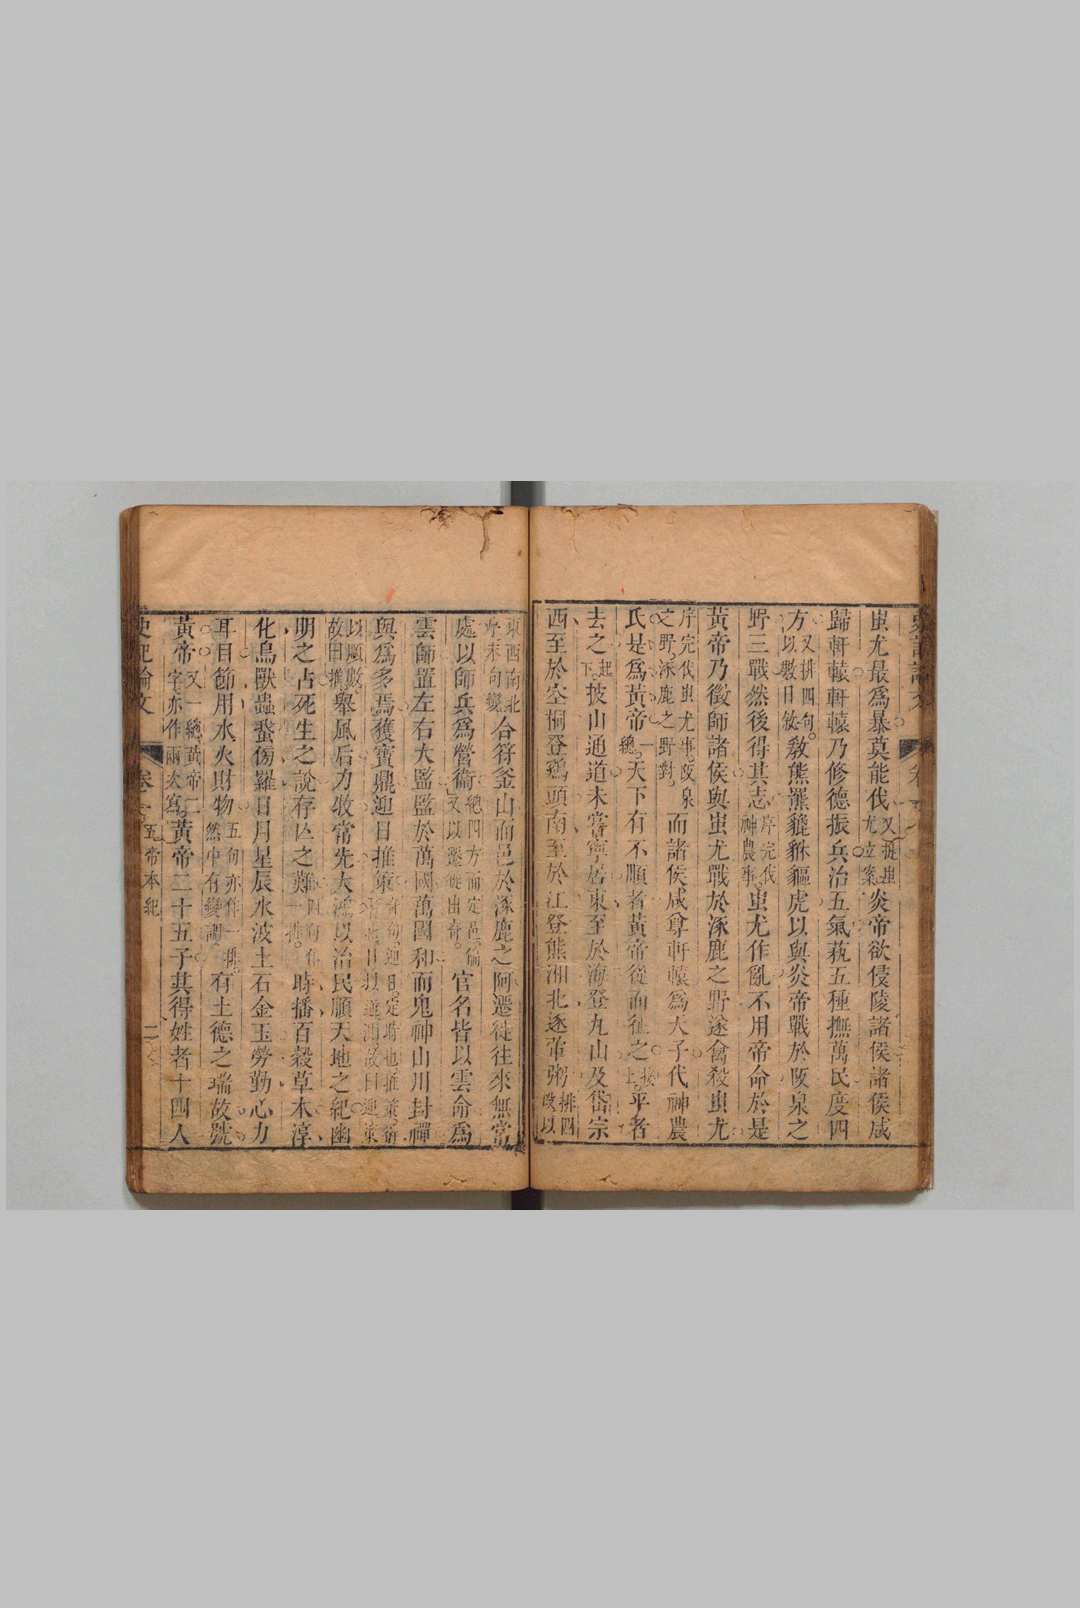 蚩尤最爲暴莫能伐又誕蚩尤立案炎帝欲侵陵諸侯諸侯咸
歸軒轅軒轅乃修德振兵治五氣蓺五種撫萬民度四
方又排四句以數目敍敎熊羆貔貅貙虎以與炎帝戰於阪泉之
野三戰然後得其志序完伐神農事蚩尤作亂不用帝命於是
黃帝乃徵師諸侯與蚩尤戰於涿鹿之野遂禽殺蚩尤
序完伐蚩尤事阪泉之野涿鹿之野對而諸侯咸尊軒轅爲天子代神農
氏是爲黃帝一總天下有不順者黃帝從而征之接上平者
去之起下披山通道未嘗寧居東至於海登丸山及岱宗
西至於空桐登雞頭南至於江登熊湘北逐葷粥排四段以
東西南北亦未句變合符釜山而邑於涿鹿之阿遷徙往來無常
處以師兵爲營衞總四方而定邑偏又以遷徙出奇官名皆以雲命爲
雲師置左右大監監於萬國萬國和而鬼神山川封禪
與爲多焉獲寶鼎迎日推筴
以順數故曰推舉風后力牧常先大鴻以治民順天地之紀幽
明之占死生之說存亡之難時播百穀草木淳
化鳥獸蟲蛾旁羅日月星辰水波土石金玉勞勤心力
耳目節用水火財物五句亦作一排然中有變調有土德之瑞故號
黃帝又一總黃帝二字亦作兩次寫黃帝二十五子其得姓者十四人
史記論文
卷一
五帝本紀
二